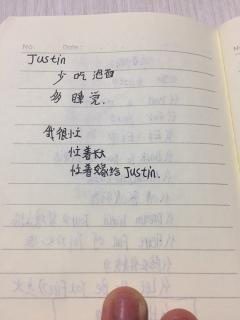 No. Date:
Justin
少吃泡面
多睡觉.
我很忙
忙着
忙着嫁给 Justin.